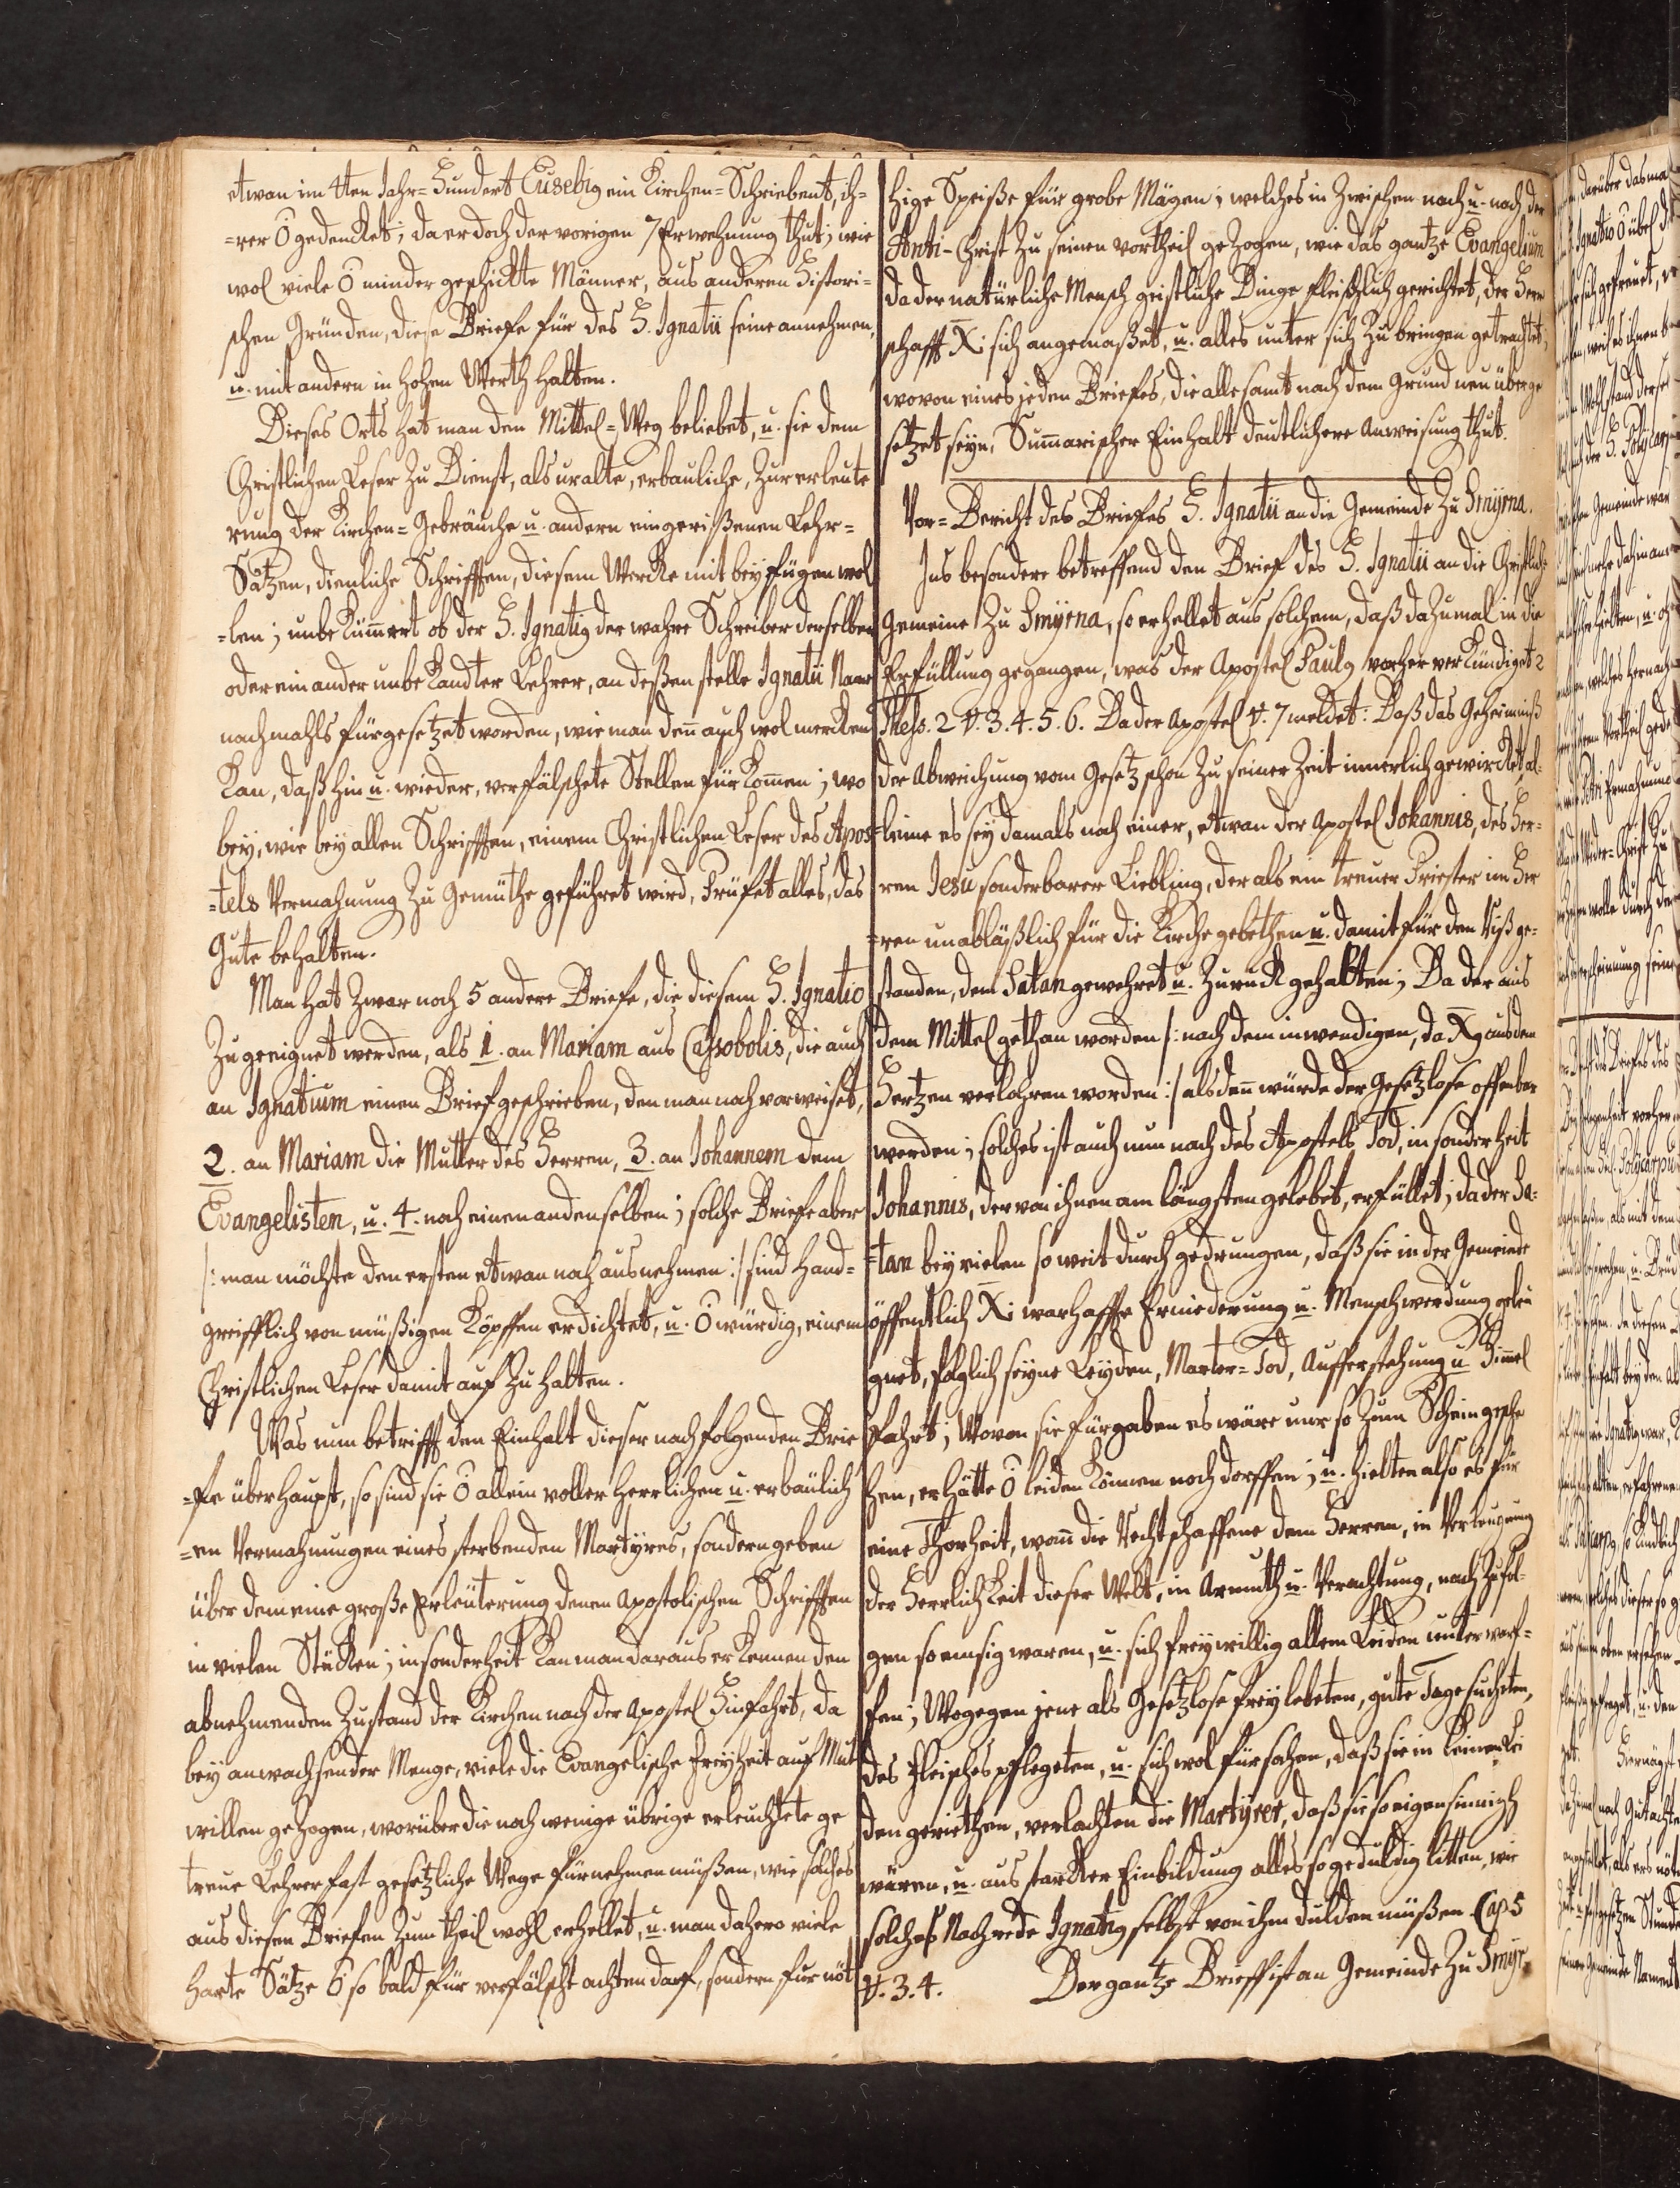 etwan im 4ten Jahr=Hundert Eusebig ein Kirchen=Schriebent, ih=
=rer ō gedencket; da er doch der vorigen 7 Erwehnung thut; wie
wol viele ō minder geschickte Männer, aus anderen Histori=
schen Gründen, diese Briefe für des H. Ignatii seine annehmen,
u. mit andern in hohen Werth halten.
Dieses Orts hat man den Mittel=Weg beliebet, u. sie dem
Christlichen Leser zu Dienst, als uralte, erbauliche, zur erleute
rung der Kirchen=Gebräuche u. andern eingerißenen Lehr=
Sätzen, dienliche Schrifften, diesem Wercke mit beyfügen wol
=len; unbekümmert ob der H. Ignatig der wahre Schreiber derselben
oder ein ander unbekandter Lehrer, an deßen stelle Ignatii Name
nachmahls fürgesetzet worden, wie man deñ auch wol mercken
kan, daß hin u. wieder, verfälschete Stellen fürkom̄en; wo
bey, wie bey allen Schrifften, einem Christlichen Leser des Apos
=tels Vermahnung zu Gemüthe geführet wird, Prüfet alles, das
Gute behalten.
Man hat zwar noch 5 andere Briefe, die diesem H. Ignatio
zugeeignet werden, als 1. an Mariam aus Cassobolis, die auch
an Ignatium einen Brief geschrieben, den man noch vorweiset,
2. an Mariam die Mutter des Herren, 3. an Johannem dem
Evangelisten, u. 4. noch einen an denselben; solche Briefe aber
/: man möchte den ersten etwan noch ausnehmen :/ sind hand=
greifflich von müßigen Köpffen erdichtet, u. ō würdig, einem
Christlichen Leser damit auf zu halten.
Was nun betrifft den Einhalt dieser nachfolgenden Brie
=fe überhaupt, so sind sie ō allein voller herrlichen u. erbaulich
=en Vermahnungen eines sterbenden Martyres, sondern geben
über dem eine große Erleüterung denen Apostolischen Schrifften
in vielen Stücken; insonderheit kan man daraus erkennen den
abnehmenden Zustand der Kirchen nach der Apostel Hinfahrt, da
bey anwachsender Menge, viele die Evangelische freyheit auf Mut
willen gezogen, worüber die noch wenige übrige erleuchtete ge
treue Lehrer fast gesetzliche Wege fürnehmen müßen, wie solches
aus diesen Briefen zum theil wohl erhellet, u. man dahero viele
harte Sätze ō so bald für verfälscht achten darf, sondern für nöt
hige Speiße für grobe Mägen; welches in zwischen nach u. nach der
Anti-Christ zu seinen vortheil gezogen, wie das gantze Evangelium
da der natürliche Mensch geistliche Dinge fleischlich gerichtet, der Herr
schafft Xi sich angemaßet, u. alles unter sich zu bringen getrachtet;
wovon eines jeden Briefes, die alle samt nach dem Grund neu überge
setzet seyn, Sum̄arischer Einhalt deutlichere Anweisung thut.
Vor=Bericht des Briefes H. Ignatii an die Gemeinde zu Smÿrna.
Ins besondere betreffend den Brief des H. Ignatii an die Christliche
Gemeine zu Smÿrna, so erhellet aus solchem, daß dazumal in die
Erfüllung gegangen, was der Apostel Paulg vorher verkündiget 2
Thess. 2 V. 3. 4. 5. 6. Da der Apostel V. 7 meldet: Daß das Geheimniß
der Abweichung vom Gesetz schon zu seiner Zeit innerlich gewircket, al=
=leine es sey damals noch einer, etwan der Apostel Johannis, des Her=
ren Jesu sonderbarer Liebling, der als ein treuer Priester im Her
=ren unabläßlich für die Kirche gebethen u. damit für den Riß ge=
standen, dem Satan gewehret u. zuruck gehalten; Da der aus
dem Mittel gethan worden /: nach dem inwendigen, da Xg aus dem
Hertzen verlohren worden :/ alsdeñ würde der Gesetzlose offenbar
werden; solches ist auch nun nach des Apostels Tod, insonderheit
Johannis, der von ihnen am längsten gelebet, erfüllet; da der Sa=
=tan bey vielen so weit durch gedrungen, daß sie in der Gemeinde
öffentlich Xi warhaffte Erniederung u. Menschwerdung geleu
gnet, folglich seyne Leyden, Marter=Tod, Aufferstehung u. Him̄el
Fahrt; Wovon sie fürgaben es wäre nur so zum Schein gesche
hen, er hätte ō leiden können noch dorffen; u. hielten also es für
eine Thorheit, wañ die Rechtschaffene dem Herren, in Verleugnung
der Herrlichkeit dieser Welt, in Armuth u. Verachtung, nach zufol=
gen so emsig waren, u. sich freywillig allem Leiden unterwarf=
fen; Wogegen jene als Gesetzlose frey lebeten, gute Tage suchten,
des Fleisches pflegeten, u. sich wol fürsahen, daß sie in keinen Lei
den geriethen, verlachten die Martÿrer, daß sie so eigensinnich
wären, u. aus starcker Einbildung alles so geduldig litten, wie
solches Nachrede Ignatig selbst von ihm dulden müßen Cap 5
V. 3. 4. Der gantze Brieff ist an Gemeinde zu Smÿr=